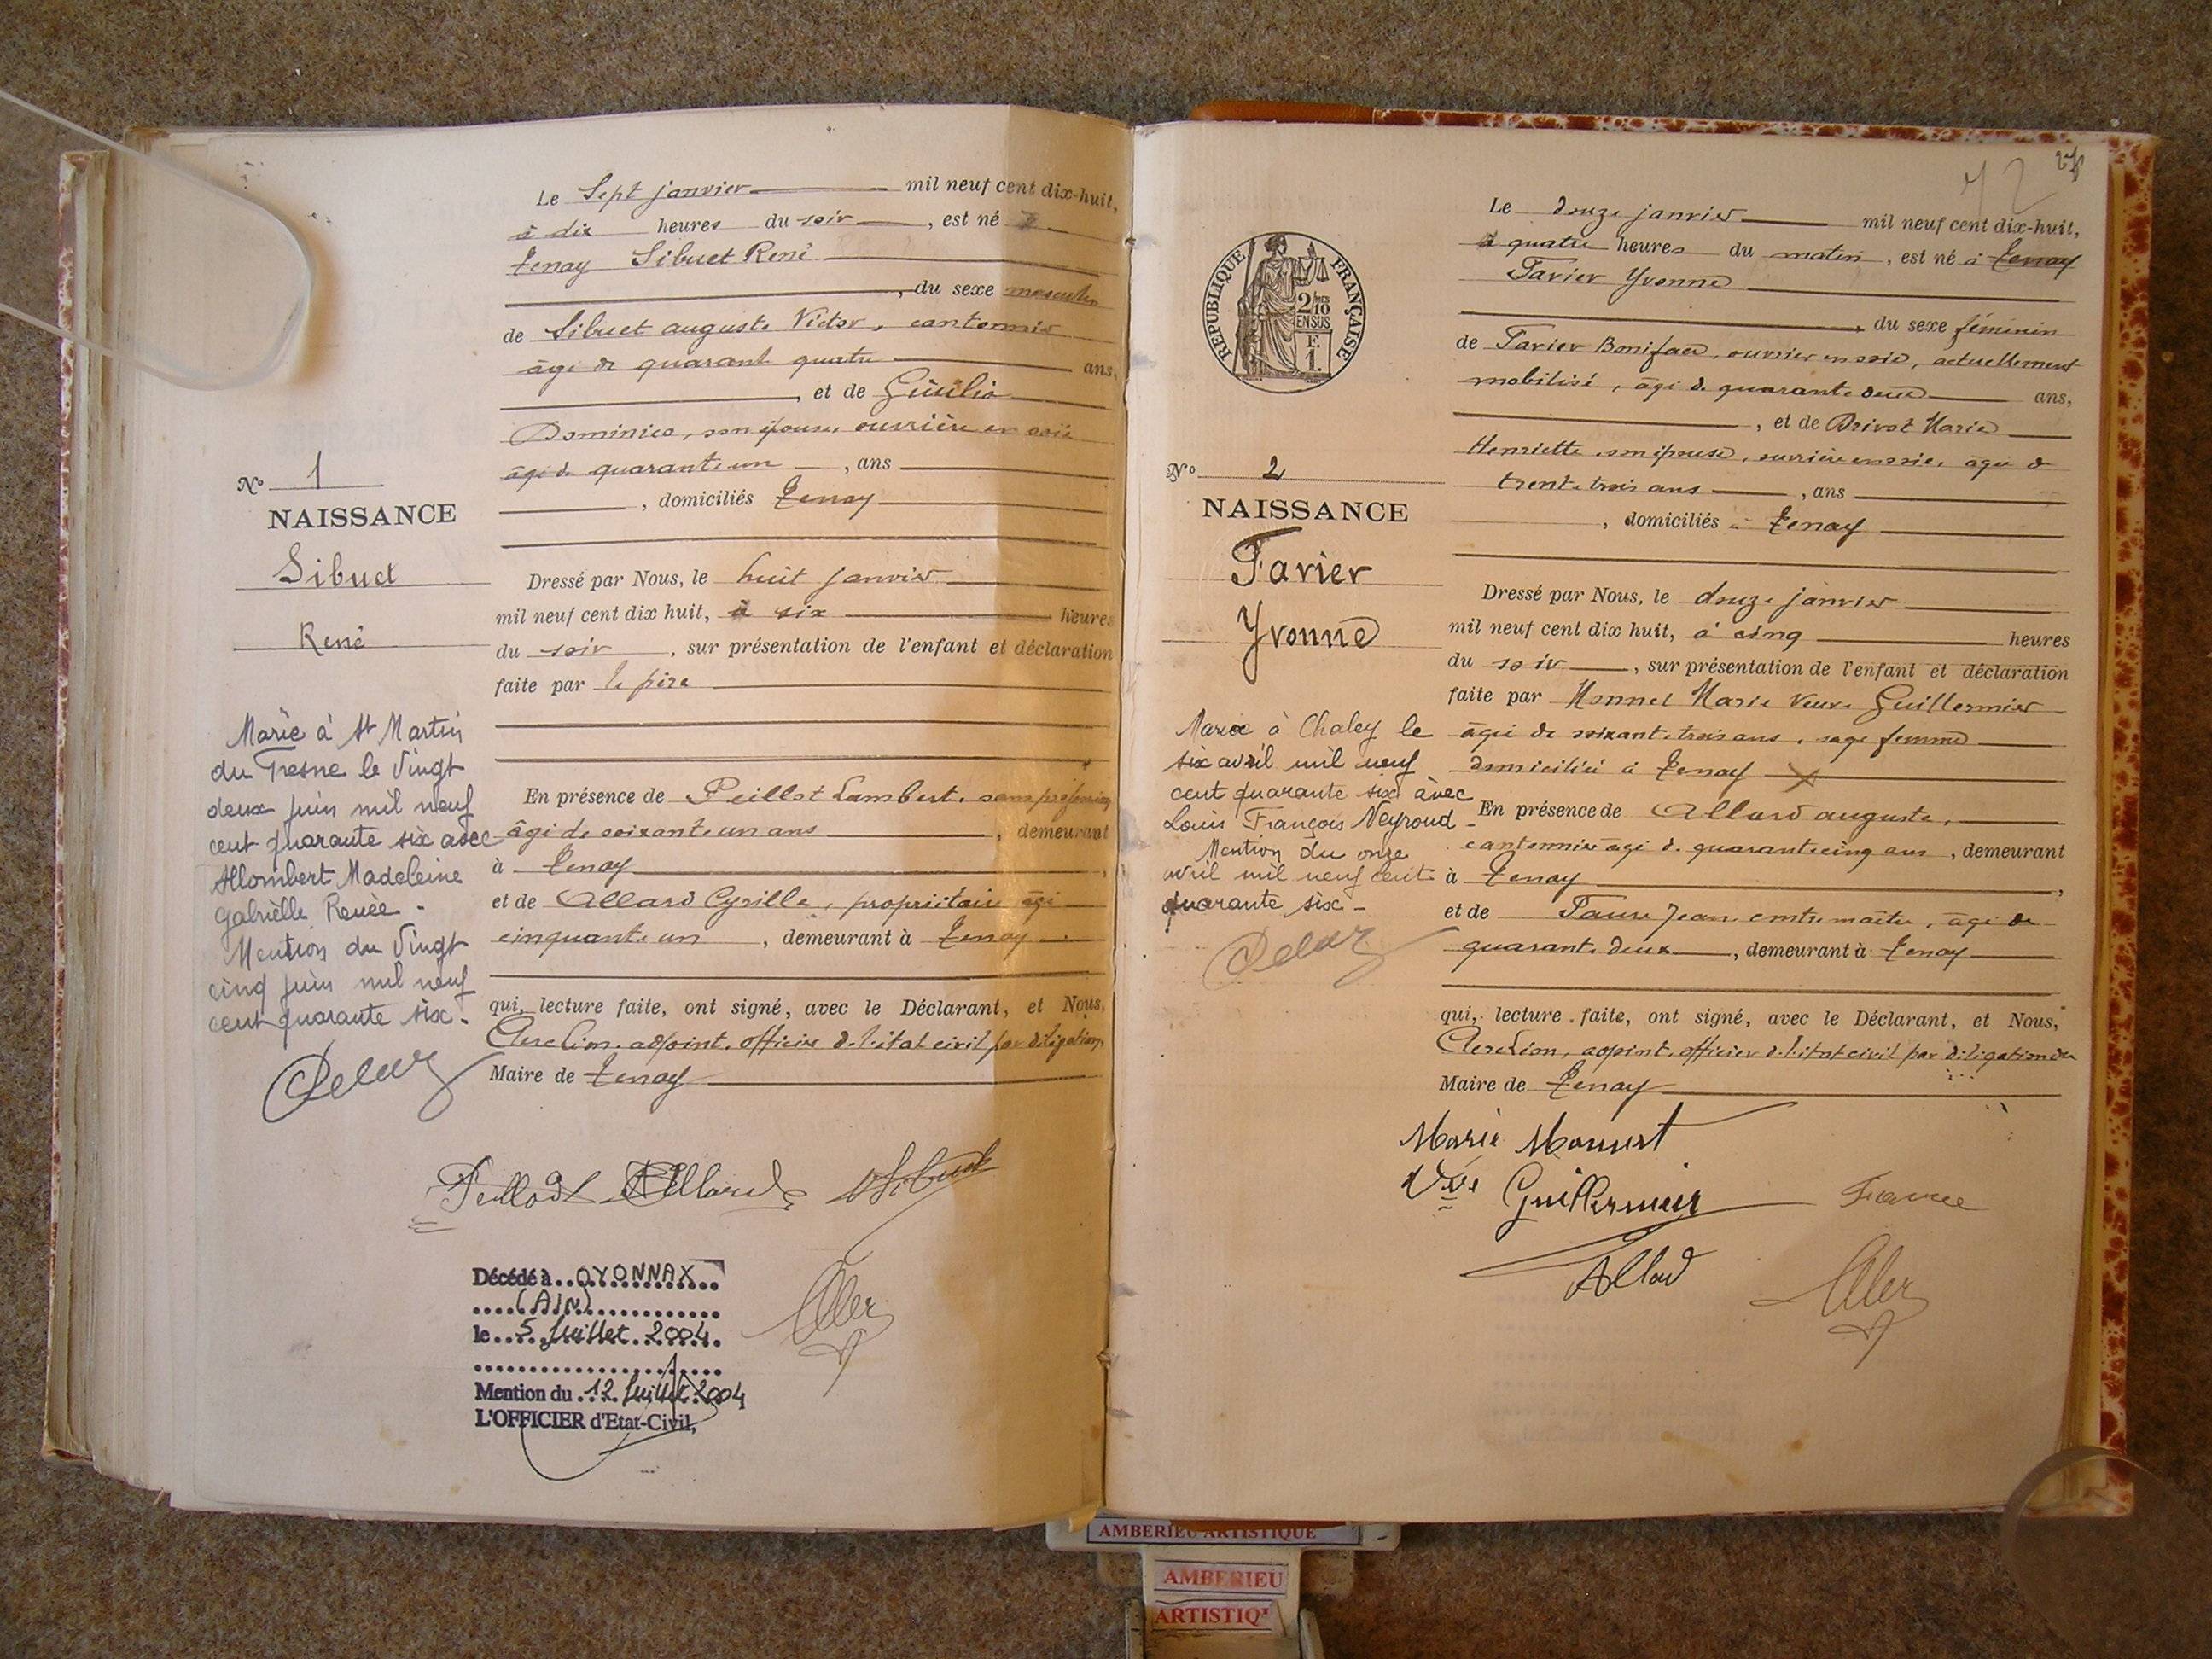 Le Sept janvier mil neuf cent dix-huit,
à dix heures du soir, est né à
Tenay Sibuet René
, du sexe masculin
de Sibuet auguste Victor, cantonnier
âgé de quarante quatre ans,
, et de
Dominica, son épouse, ouvrière en soie
âgée de quarante un, ans
, domiciliés Tenay
Nº 1
NAISSANCE
Sibuet
René
Dressé par Nous, le huit janvier
mil neuf cent dix huit, à six heures
du soir, sur présentation de l'enfant et déclaration
faite par le père
En présence de Peillot Lambert, sans profession
âgé de soixante un ans, demeurant
à Tenay
et de Allard Cyrille, propriétaire âgé
cinquante un, demeurant à Tenay
qui, lecture faite, ont signé, avec le Déclarant, et Nous,
adjoint, officier de l'état civil par délégation
Maire de Tenay
Marié à St Martin
du Fresne le Vingt
deux juin mil neuf
cent quarante six avec
Allombert Madeleine
Gabrielle Renée -
Mention du Vingt
cinq juin mil neuf
cent quarante six -
Allard Sibuet
Décédé à OYONNAX
(AIN)
le 5 Juillet 2004
Mention du 12 Juillet 2004
L'OFFICIER d'Etat-Civil,
72
Le douze janvier mil neuf cent dix-huit,
à quatre heures du matin, est né à Tenay
Favier Yvonne
, du sexe féminin
de Favier Boniface, ouvrier en soie, actuellement
mobilisé, âgé de quarante deux ans,
, et de Marie
Henriette, son épouse, ouvrière en soie, âgée de
trente trois ans, ans
, domiciliés à Tenay
RÉPUBLIQUE FRANÇAISE
2/10
EN SUS
F.
1.
Nº 2
NAISSANCE
Favier
Yvonne
Dressé par Nous, le douze janvier
mil neuf cent dix huit, à cinq heures
du soir, sur présentation de l'enfant et déclaration
faite par Marie Veuve Guillermier
âgée de soixante trois ans, sage femme
domiciliée à Tenay
En présence de Allard auguste,
cantonnier âgé de quarante cinq ans, demeurant
à Tenay
et de Faure Jean, contremaître, âgé de
quarante deux, demeurant à Tenay
qui, lecture faite, ont signé, avec le Déclarant, et Nous,
Léon, adjoint, officier de l'état civil par délégation du
Maire de Tenay
Mariée à Chaley le
six avril mil neuf
cent quarante six avec
Louis François Neyroud -
Mention du onze
avril mil neuf cent
quarante six -
Marie
Vve Guillermier
Faure
Allard
AMBERIEU ARTISTIQUE
AMBERIEU
ARTISTIQ